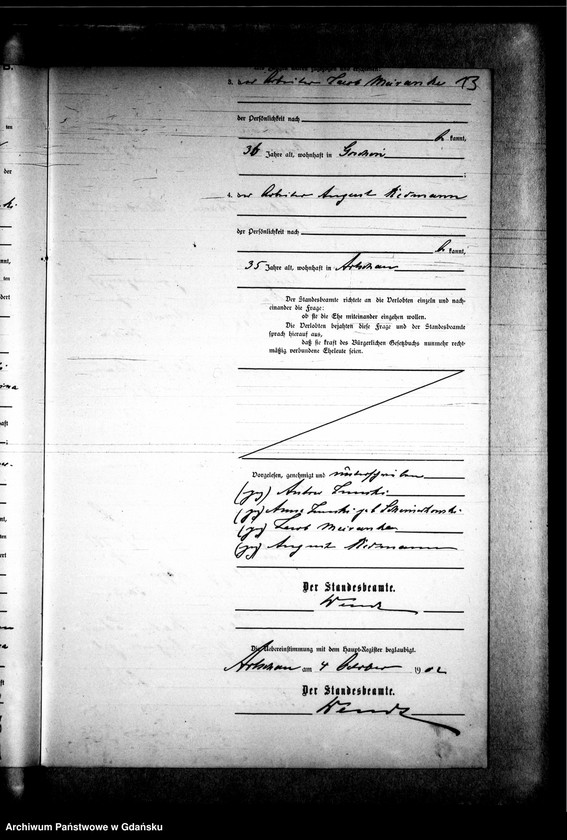 3. der Arbeiter Jacob 13
der Persönlichkeit nach
be kannt,
36 Jahre alt, wohnhaft in
4. der Arbeiter August Riedmann
der Persönlichkeit nach
be kannt,
35 Jahre alt, wohnhaft in Artschau
Der Standesbeamte richtete an die Verlobten einzeln und nach-
einander die Frage:
ob sie die Ehe miteinander eingehen wollen.
Die Verlobten bejahten diese Frage und der Standesbeamte
sprach hierauf aus,
daß sie kraft des Bürgerlichen Gesetzbuchs nunmehr recht-
mäßig verbundene Eheleute seien.
Vorgelesen, genehmigt und unterschrieben
(gz) Anton
(gz) Anna geb
(gz) Jacob
(gz) August Riedmann
Der Standesbeamte.
Wendt
Die Uebereinstimmung mit dem Haupt-Register beglaubigt.
Artschau am 4 October 1902
Der Standesbeamte.
Wendt
Archiwum Państwowe w Gdańsku